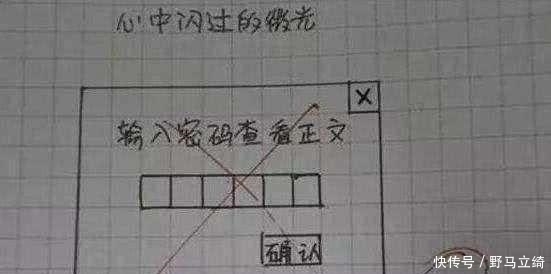 心中闪过的微光
X
输入密码查看正文
确认
快传号/野马立绮